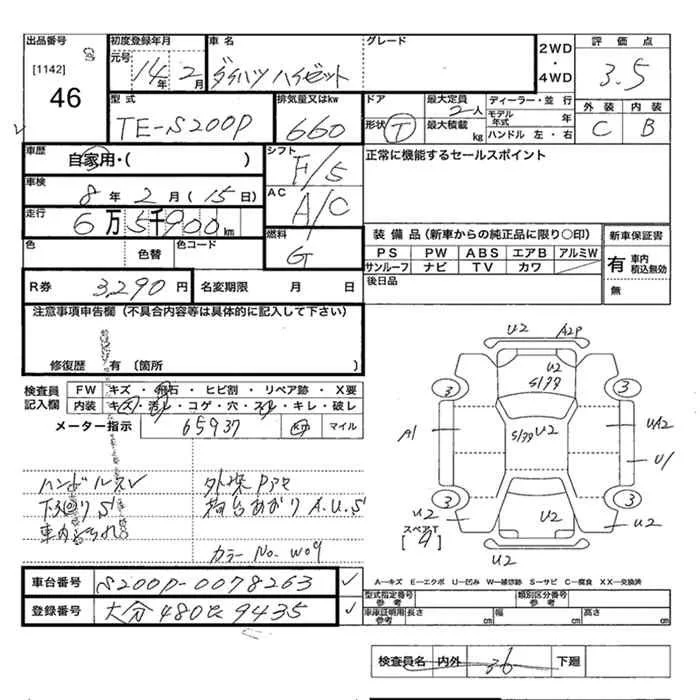 出品番号
[1142]
46
初度登録年月
元号
14年 2月
車名
ダイハツ ハイゼット
グレード
2WD
・
4WD
評価点
3.5
外装 内装
C B
型式
TE-S200P
排気量又はkw
660
ドア
形状 T
最大定員
2人
最大積載
kg
ディーラー・並行
モデル年式 年
ハンドル 左・右
車歴
自家用・( )
シフト
F/5
正常に機能するセールスポイント
車検
8年 2月(15日)
AC
A/C
走行
6万5千900km
色
色替
色コード
燃料
G
装備品(新車からの純正品に限り○印)
PS PW ABS エアB アルミW
サンルーフ ナビ TV カワ
後日品
新車保証書
有 車内積込無効
無
R券 3,290円
名変期限 月 日
注意事項申告欄(不具合内容等は具体的に記入して下さい)
修復歴 有(箇所 )
検査員記入欄
FW キズ・飛石・ヒビ割・リペア跡・X要
内装 キズ・汚レ・コゲ・穴・スレ・キレ・破レ
メーター指示 65937 km マイル
ハンドルスレ
下廻りS
外装Pアセ
荷台あおりA.U.S
カラーNo. W09
車台番号 S200P-0078263
登録番号 大分480 9435
U2 A2P
U2
S177
3 3
A1
S177 U2
UA2
U1
3 3
U2
U2
U2
スペアT
[ ]
U2
A―キズ E―エクボ U―凹み W―補修跡 S―サビ C―腐食 XX―交換済
型式指定番号 参考
類別区分番号 参考
車庫証明用 参考
長さ cm 幅 cm 高さ cm
検査員名 内外 36 下廻